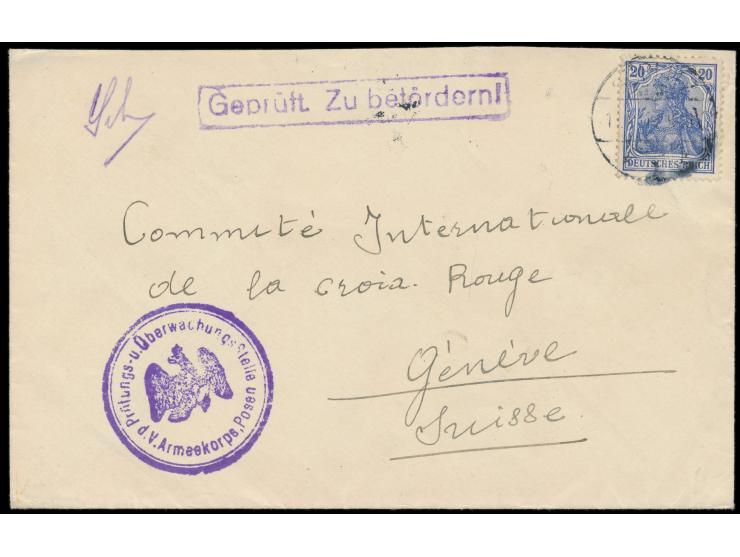 Geprüft. Zu befördern!
20 20
DEUTSCHES REICH
Commité Internationale
de la croix. Rouge
Génève
Suisse.
Prüfungs-u.Überwachungsstelle
d.V.Armeekorps,Posen